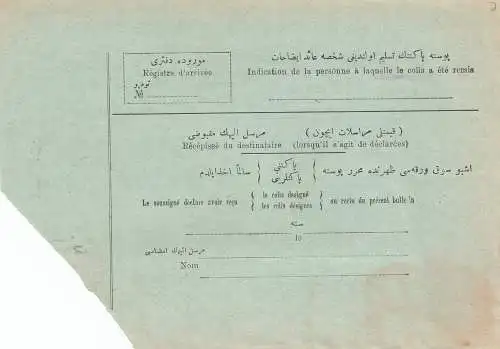 موروده دفتری
Régistre d'arrivée
نومرو
№
پوسته پاكتنك تسليم اولنديغی شخصه عائد ايضاحات
Indication de la personne à laquelle le colis a été remis
مرسل اليهك مقبوضی ( قيمتلی مراسلات ايچون )
Récépissé du destinataire (lorsqu'il s'agit de déclarées)
اشبو سوق ورقه‌سی ظهرنده محرر پوسته { پاكتنی پاكتلرينی } سالماً اخذ ايلدم
Le soussigné déclare avoir reçu { le colis designé les colis désignés } au recto du présent bulle'n
سنه
le
مرسل اليهك امضاسی
Nom